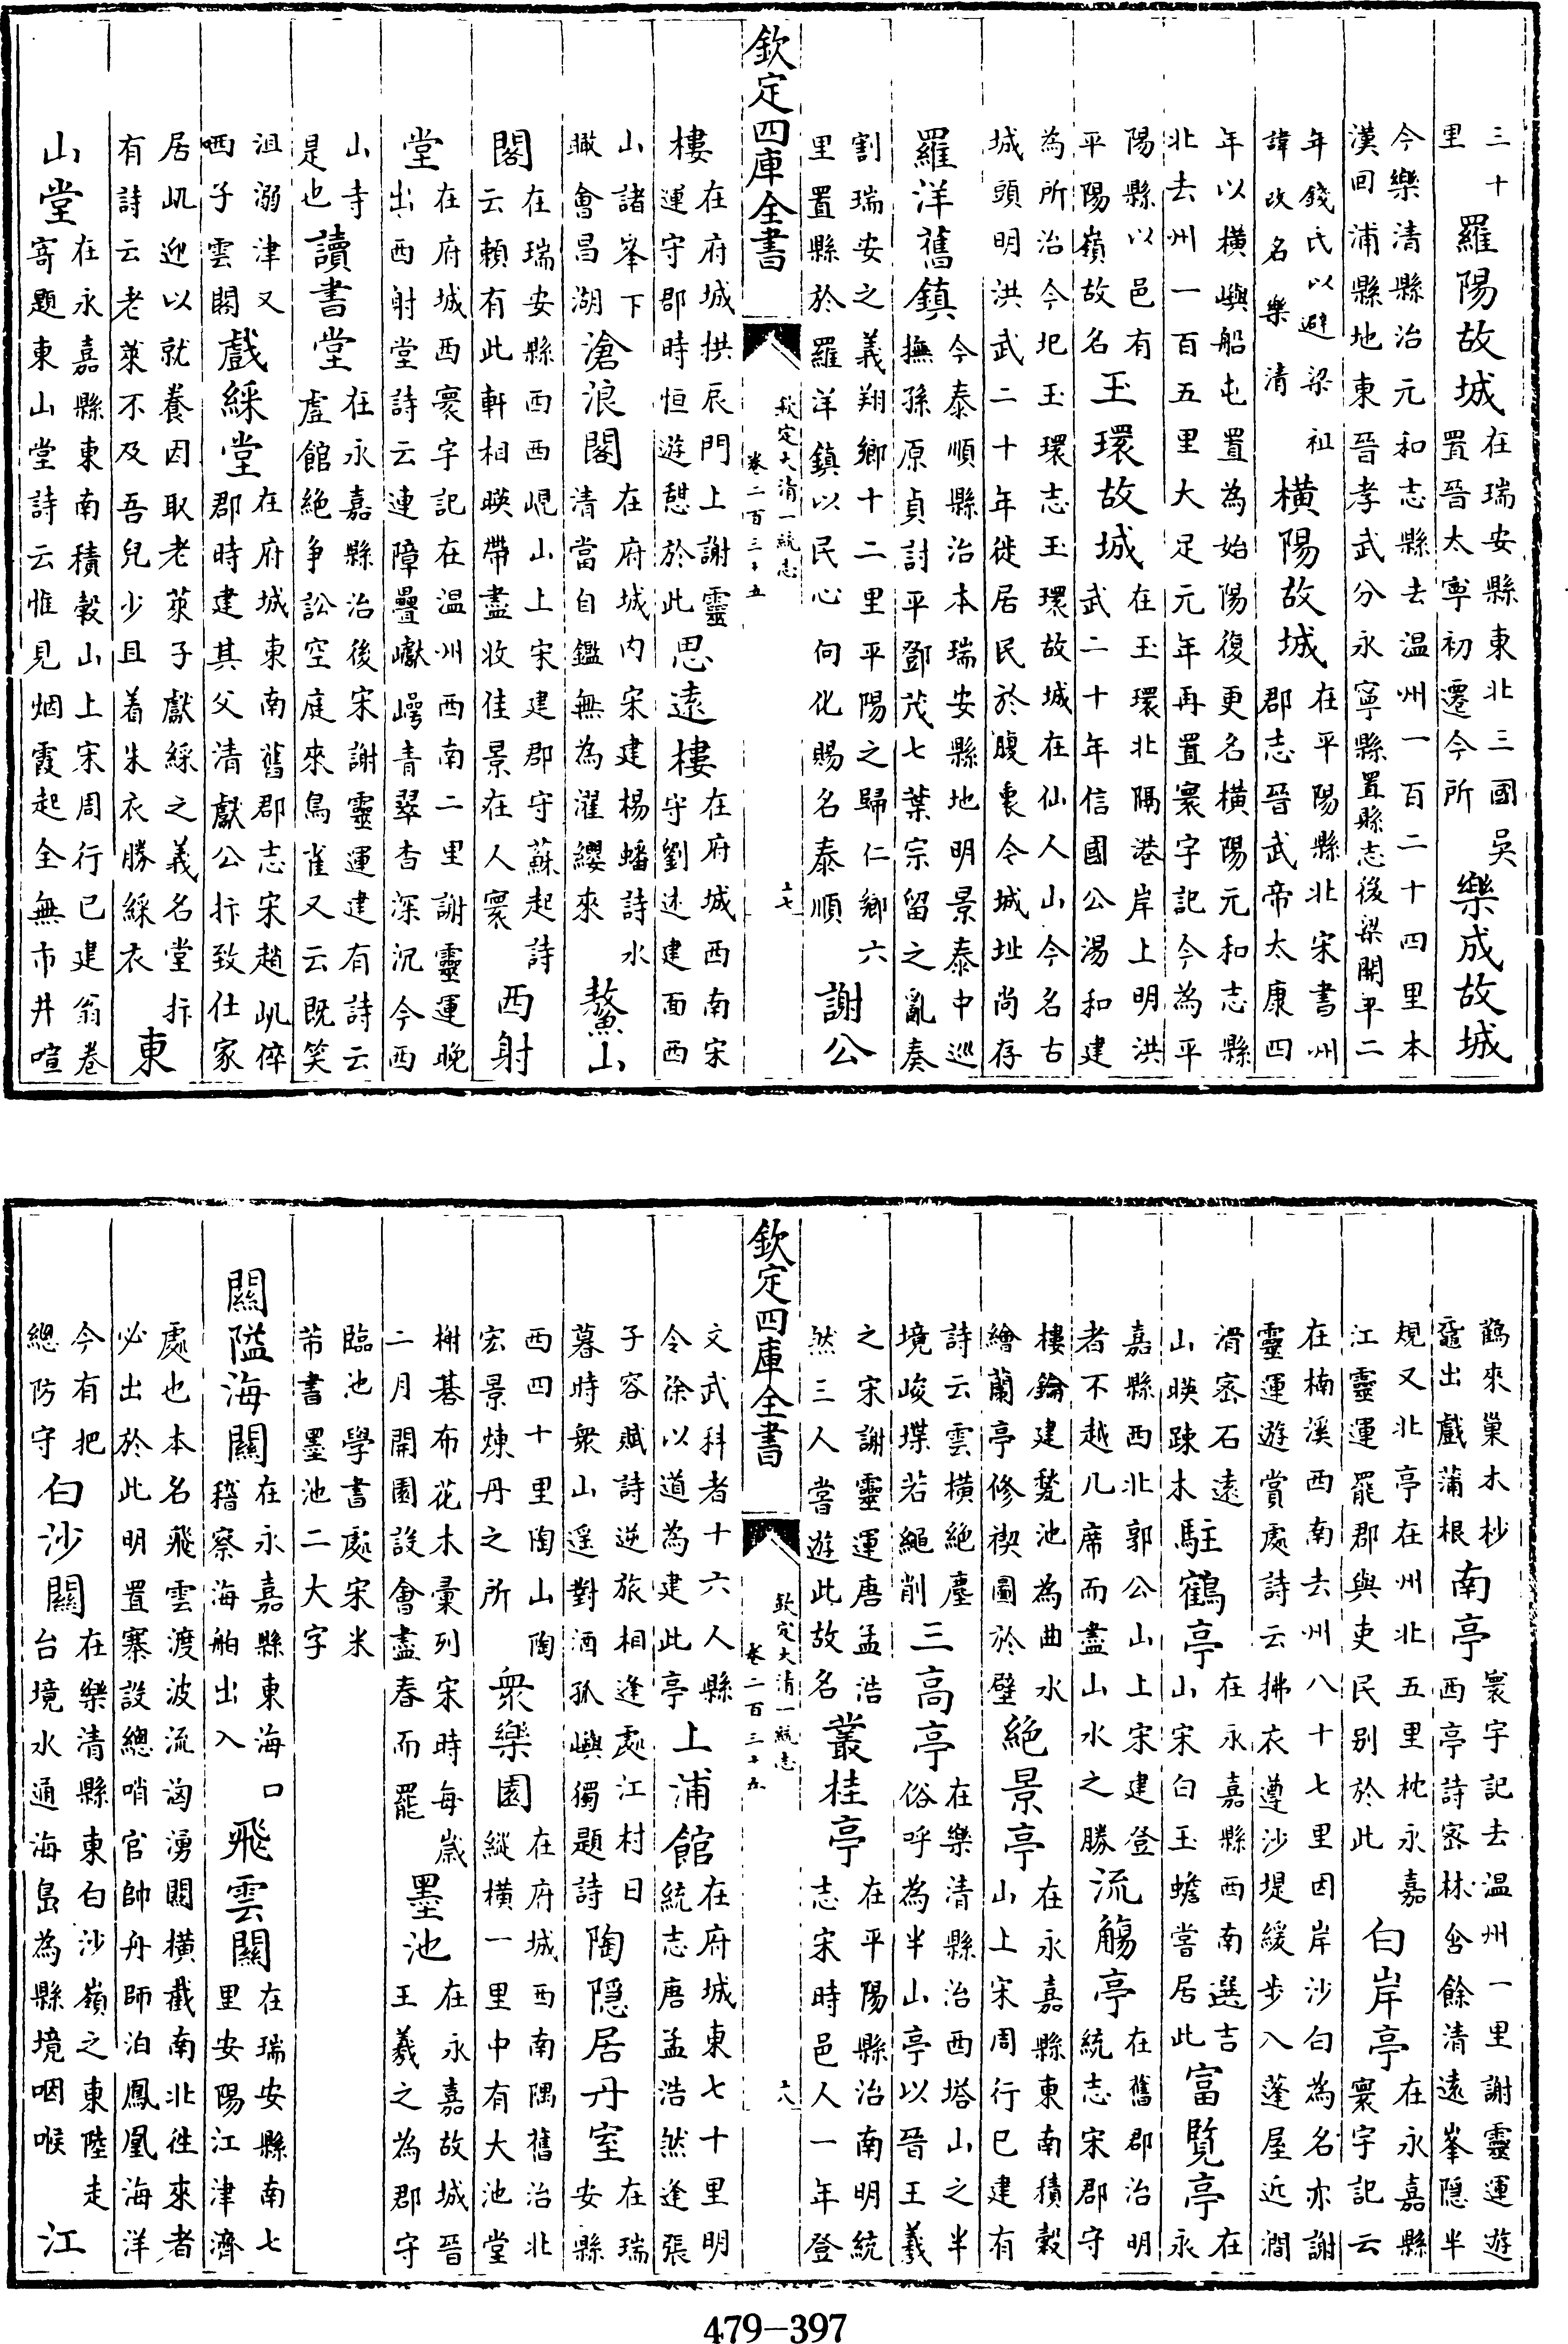 三十
里
羅陽故城
在瑞安縣東北三國吳
置晉太寧初遷今所
樂成故城
今樂清縣治元和志縣去温州一百二十四里本
漢回浦縣地東晉孝武分永寧縣置縣志後梁開平二
年錢氏以避梁祖
諱改名樂清
橫陽故城
在平陽縣北宋書州
郡志晉武帝太康四
年以橫嶼船屯置為始陽復更名橫陽元和志縣
北去州一百五里大足元年再置寰宇記今為平
陽縣以邑有
平陽嶺故名
玉環故城
在玉環北隅港岸上明洪
武二十年信國公湯和建
為所治今圯玉環志玉環故城在仙人山今名古
城頭明洪武二十年徙居民於腹裏今城址尚存
羅洋舊鎮
今泰順縣治本瑞安縣地明景泰中巡
撫孫原貞討平鄧茂七葉宗留之亂奏
割瑞安之義翔鄉十二里平陽之歸仁鄉六
里置縣於羅洋鎮以民心向化賜名泰順
謝公
欽定四庫全書
欽定大清一統志
卷二百三十五
十七
樓
在府城拱辰門上謝靈
運守郡時恒遊憇於此
思遠樓
在府城西南宋
守劉述建面西
山諸峯下
瞰會昌湖
滄浪閣
在府城内宋建楊蟠詩水
清當自鑑無為濯纓來
鰲山
閣
在瑞安縣西西峴山上宋建郡守蘇起詩
云賴有此軒相暎帶盡收佳景在人寰
西射
堂
在府城西寰宇記在温州西南二里謝靈運晚
出西射堂詩云連障疊巘崿青翠杳深沉今西
山寺
是也
讀書堂
在永嘉縣治後宋謝靈運建有詩云
虛館絶爭訟空庭來鳥雀又云既笑
沮溺津又
哂子雲閣
戲綵堂
在府城東南舊郡志宋趙㞦倅
郡時建其父清獻公抃致仕家
居㞦迎以就養因取老萊子獻綵之義名堂抃
有詩云老萊不及吾兒少且着朱衣勝綵衣
東
山堂
在永嘉縣東南積穀山上宋周行已建翁卷
寄題東山堂詩云惟見烟霞起全無市井喧
鸛來巢木杪
黿出戲蒲根
南亭
寰宇記去温州一里謝靈運遊
西亭詩密林含餘清遠峯隱半
規又北亭在州北五里枕永嘉
江靈運罷郡與吏民别於此
白岸亭
在永嘉縣
寰宇記云
在楠溪西南去州八十七里因岸沙白為名亦謝
靈運遊賞處詩云拂衣遵沙堤緩步入蓬屋近澗
涓密石遠
山暎踈木
駐鶴亭
在永嘉縣西南選吉
山宋白玉蟾嘗居此
富覽亭
在
永
嘉縣西北郭公山上宋建登
者不越几席而盡山水之勝
流觴亭
在舊郡治明
統志宋郡守
樓鑰建甃池為曲水
繪蘭亭修禊圖於壁
絶景亭
在永嘉縣東南積穀
山上宋周行已建有
詩云雲橫絶塵
境峻堞若繩削
三高亭
在樂清縣治西塔山之半
俗呼為半山亭以晉王羲
之宋謝靈運唐孟浩
然三人嘗遊此故名
叢桂亭
在平陽縣治南明統
志宋時邑人一年登
欽定四庫全書
欽定大清一統志
卷二百三十五
十八
文武科者十六人縣
令徐以道為建此亭
上浦館
在府城東七十里明
統志唐孟浩然逢張
子容賦詩逆旅相逢處江村日
暮時衆山遥對酒孤嶼獨題詩
陶隱居丹室
在瑞
安縣
西四十里陶山陶
宏景煉丹之所
衆樂園
在府城西南隅舊治北
縱橫一里中有大池堂
榭碁布花木彙列宋時每歲
二月開園設會盡春而罷
墨池
在永嘉故城晉
王羲之為郡守
臨池學書處宋米
芾書墨池二大字
關隘海關
在永嘉縣東海口
稽察海舶出入
飛雲關
在瑞安縣南七
里安陽江津濟
處也本名飛雲渡波流洶湧闊橫截南北往來者
必出於此明置寨設總哨官帥舟師泊鳳凰海洋
今有把
總防守
白沙關
在樂清縣東白沙嶺之東陸走
台境水通海島為縣境咽喉
江
479-397